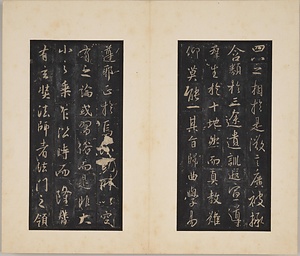 四八之相於是微言廣被拯
含類於三途遺訓遐宣導
群生於十地然而真教難
仰莫能一其旨歸曲學易
遵耶正於焉紛糾所以空
有之論或習俗而是非大
小之乘乍沿時而隆替
有玄奘法師者法門之領